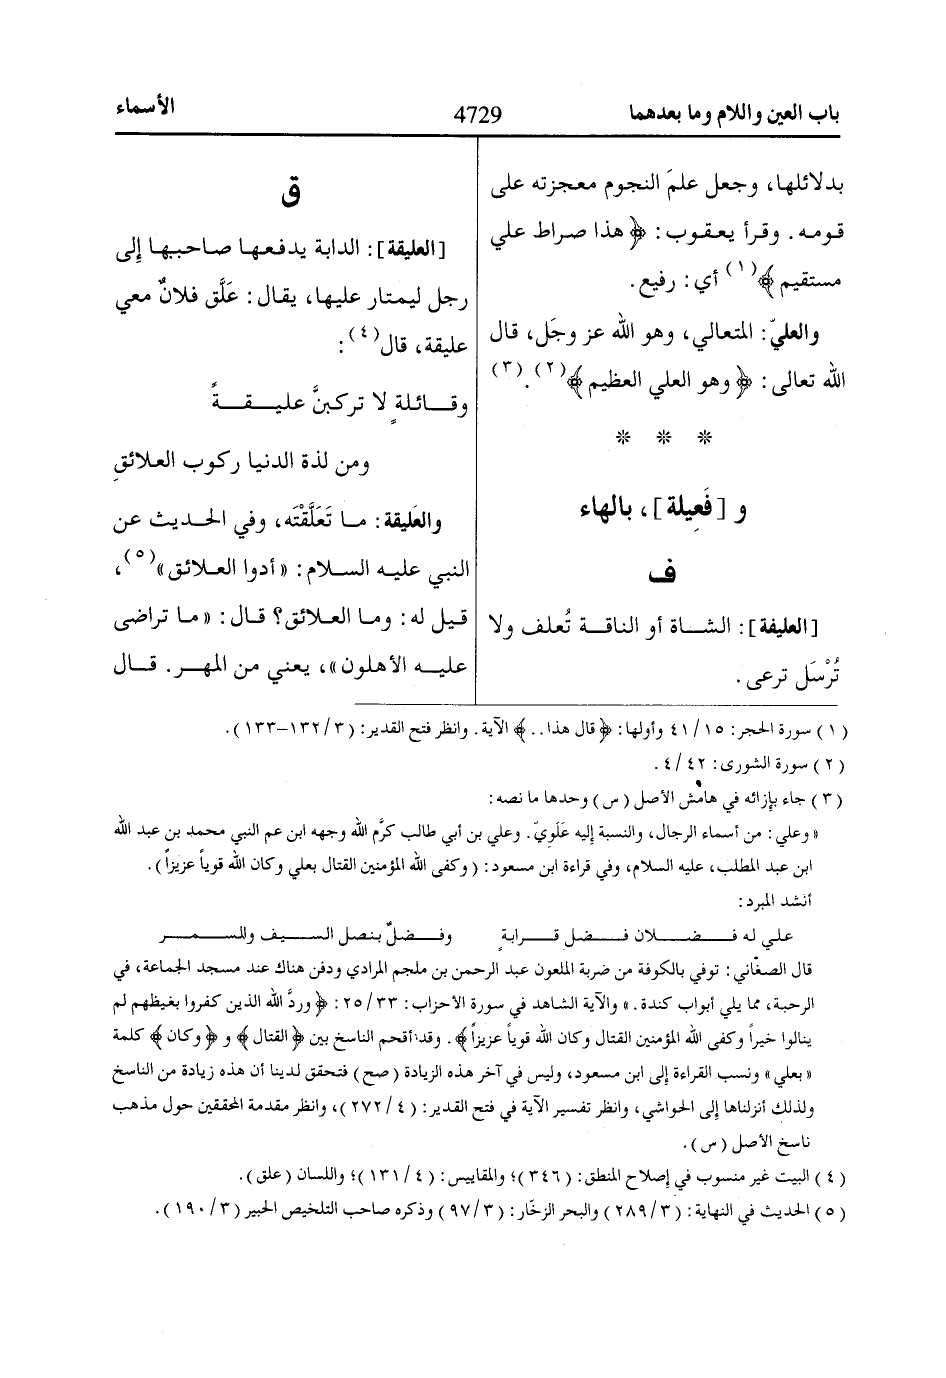 باب العين واللام وما بعدهما
4729
الأسماء
بدلائلها، وجعل علمَ النجوم معجزته على
قومه. وقرأ يعقوب: ﴿ هذا صراط علي
مستقيم ﴾(١) أي: رفيع.
والعليّ: المتعالي، وهو الله عز وجَل، قال
الله تعالى: ﴿ وهو العلي العظيم ﴾(٢).(٣)
* * *
و [فَعِيلة]، بالهاء
ف
[العليفة]: الشاة أو الناقة تُعلف ولا
تُرْسَل ترعى.
ق
[العليقة]: الدابة يدفعها صاحبها إلى
رجل ليمتار عليها، يقال: عَلَّق فلانٌ معي
عليقة، قال(٤):
وقائلةٍ لا تركبنَّ عليقةً
ومن لذة الدنيا ركوب العلائقِ
والعَليقة: ما تَعَلَّقْتَه، وفي الحديث عن
النبي عليه السلام: «أدوا العلائق»(٥)،
قيل له: وما العلائق؟ قال: «ما تراضى
عليه الأهلون»، يعني من المهر. قال
(١) سورة الحجر: ٤١/١٥ وأولها: ﴿ قال هذا.. ﴾ الآية. وانظر فتح القدير: (١٣٢/٣–١٣٣).
(٢) سورة الشورى: ٤/٤٢.
(٣) جاء بإزائه في هامش الأصل (س) وحدها ما نصه:
«وعلي: من أسماء الرجال، والنسبة إليه عَلَويّ. وعلي بن أبي طالب كرَّم الله وجهه ابن عم النبي محمد بن عبد الله
ابن عبد المطلب، عليه السلام، وفي قراءة ابن مسعود: (وكفى الله المؤمنين القتال بعلي وكان الله قوياً عزيزاً).
أنشد المبرد:
علي له فضلان فضل قرابةٍ وفضلٌ بنصل السيف والسمر
قال الصغاني: توفي بالكوفة من ضربة الملعون عبد الرحمن بن ملجم المرادي ودفن هناك عند مسجد الجماعة، في
الرحبة، مما يلي أبواب كندة.» والآية الشاهد في سورة الأحزاب: ٢٥/٣٣: ﴿ وردَّ الله الذين كفروا بغيظهم لم
ينالوا خيراً وكفى الله المؤمنين القتال وكان الله قوياً عزيزاً ﴾. وقد أقحم الناسخ بين ﴿ القتال ﴾ و ﴿ وكان ﴾ كلمة
«بعلي» ونسب القراءة إلى ابن مسعود، وليس في آخر هذه الزيادة (صح) فتحقق لدينا أن هذه زيادة من الناسخ
ولذلك أنزلناها إلى الحواشي، وانظر تفسير الآية في فتح القدير: (٢٧٢/٤)، وانظر مقدمة المحققين حول مذهب
ناسخ الأصل (س).
(٤) البيت غير منسوب في إصلاح المنطق: (٣٤٦)؛ والمقاييس: (١٣١/٤)؛ واللسان (علق).
(٥) الحديث في النهاية: (٢٨٩/٣) والبحر الزخّار: (٩٧/٣) وذكره صاحب التلخيص الحبير (١٩٠/٣).